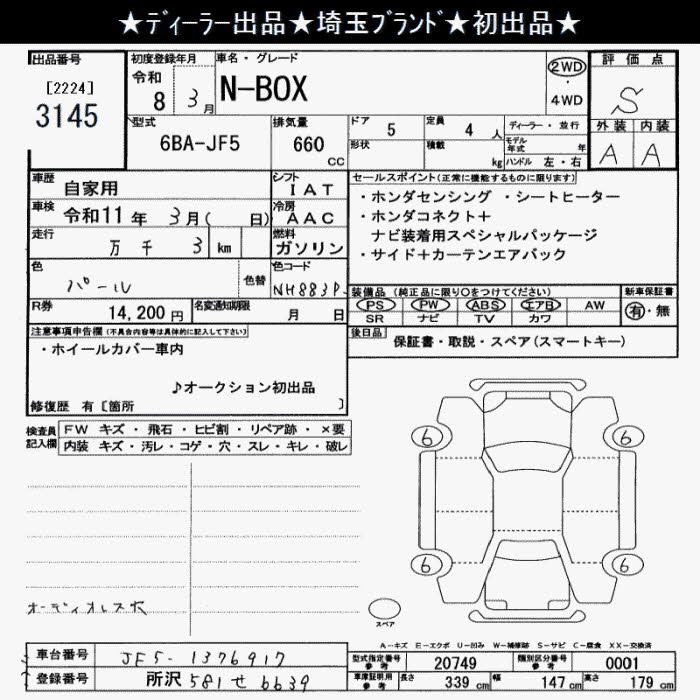 ★ディーラー出品★埼玉ブランド★初出品★
出品番号
[2224]
3145
初度登録年月
令和
8 3月
車名・グレード
N-BOX
2WD
・
4WD
評価点
S
外装 内装
A A
型式
6BA-JF5
排気量
660
cc
ドア 5
定員 4 人
形状
積載 kg
ディーラー・並行
モデル年式 年
ハンドル 左・右
車歴 自家用
シフト IAT
車検 令和11年 3月( 日)
冷房 AAC
走行 万 千 3 km
燃料 ガソリン
色 パール
色替
色コード NH883P
R券 14,200円
名変通知期限 月 日
セールスポイント(正常に機能するものに限ります)
・ホンダセンシング ・シートヒーター
・ホンダコネクト+
ナビ装着用スペシャルパッケージ
・サイド+カーテンエアバック
装備品 (純正品に限り○をつけてください)
PS PW ABS エアB AW
SR ナビ TV カワ
新車保証書
有・無
後日品
保証書・取説・スペア(スマートキー)
注意事項申告欄(不具合内容等は具体的に記入して下さい)
・ホイールカバー車内
♪オークション初出品
修復歴 有 [箇所 ]
検査員記入欄
FW キズ ・ 飛石 ・ ヒビ割 ・ リペア跡 ・ ×要
内装 キズ ・ 汚レ ・ コゲ ・ 穴 ・ スレ ・ キレ ・ 破レ
6 6
6 6
オーディオレス
スペア
A－キズ E－エクボ U－凹み W－補修跡 S－サビ C－腐食 XX－交換済
車台番号 JF5-1376917
登録番号 所沢 581 せ 6639
型式指定番号 参考 20749
類別区分番号 参考 0001
車庫証明用 参考 長さ 339 cm 幅 147 cm 高さ 179 cm